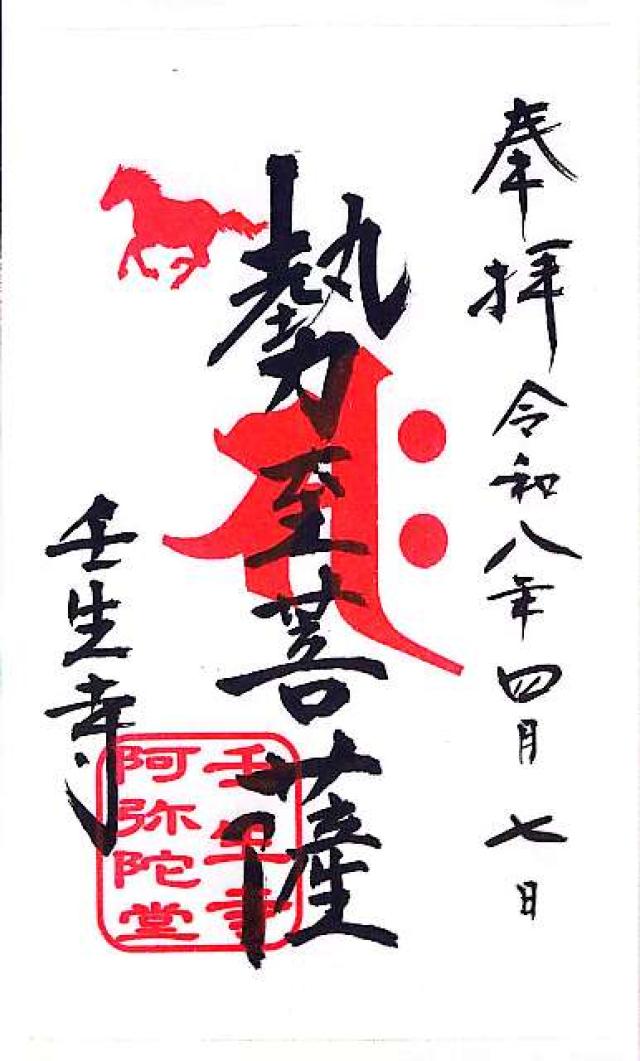 奉拝 令和八年四月七日
勢至菩薩
壬生寺
壬生寺
阿弥陀堂